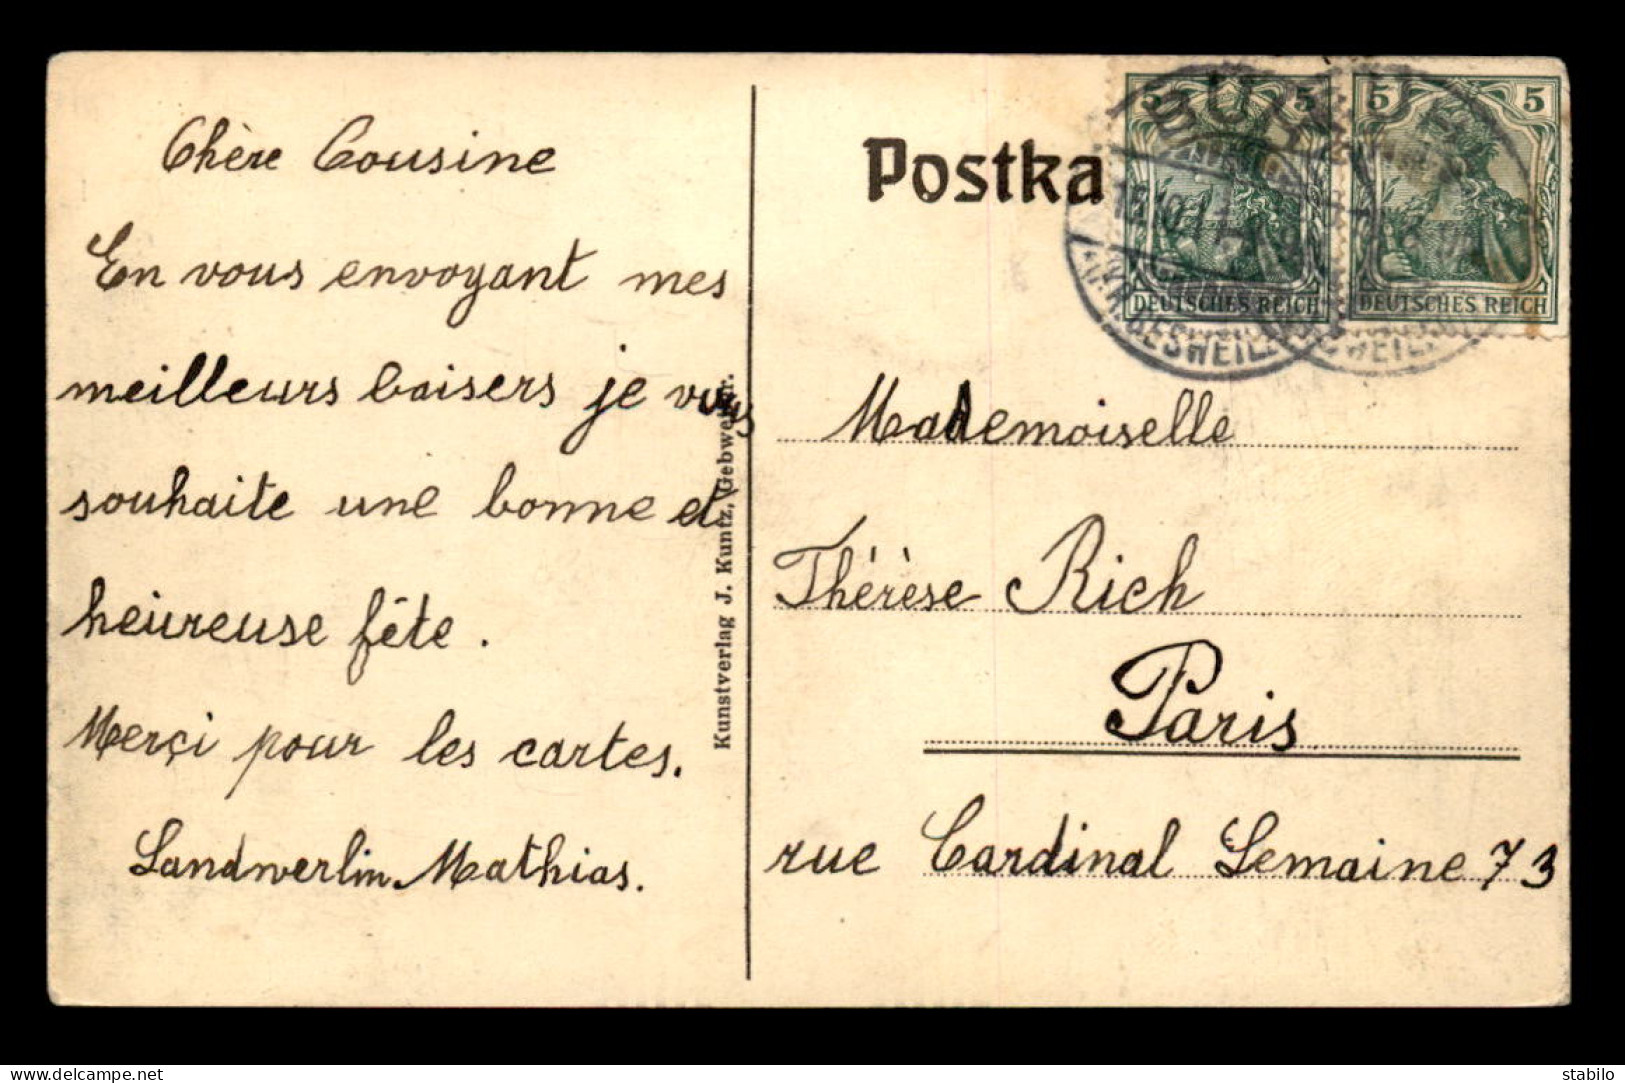 Chère Cousine
En vous envoyant mes
meilleurs baisers je vous
souhaite une bonne et
heiureuse fête.
Merçi pour les cartes.
Landwerlin Mathias.
Kunstverlag J. Kuntz, Gebweiler.
Postka
5 5
5 5
DEUTSCHES REICH
DEUTSCHES REICH
Mademoiselle
Thérèse Rich
Paris
rue Cardinal Lemaine 73
www.delcampe.net
stabilo